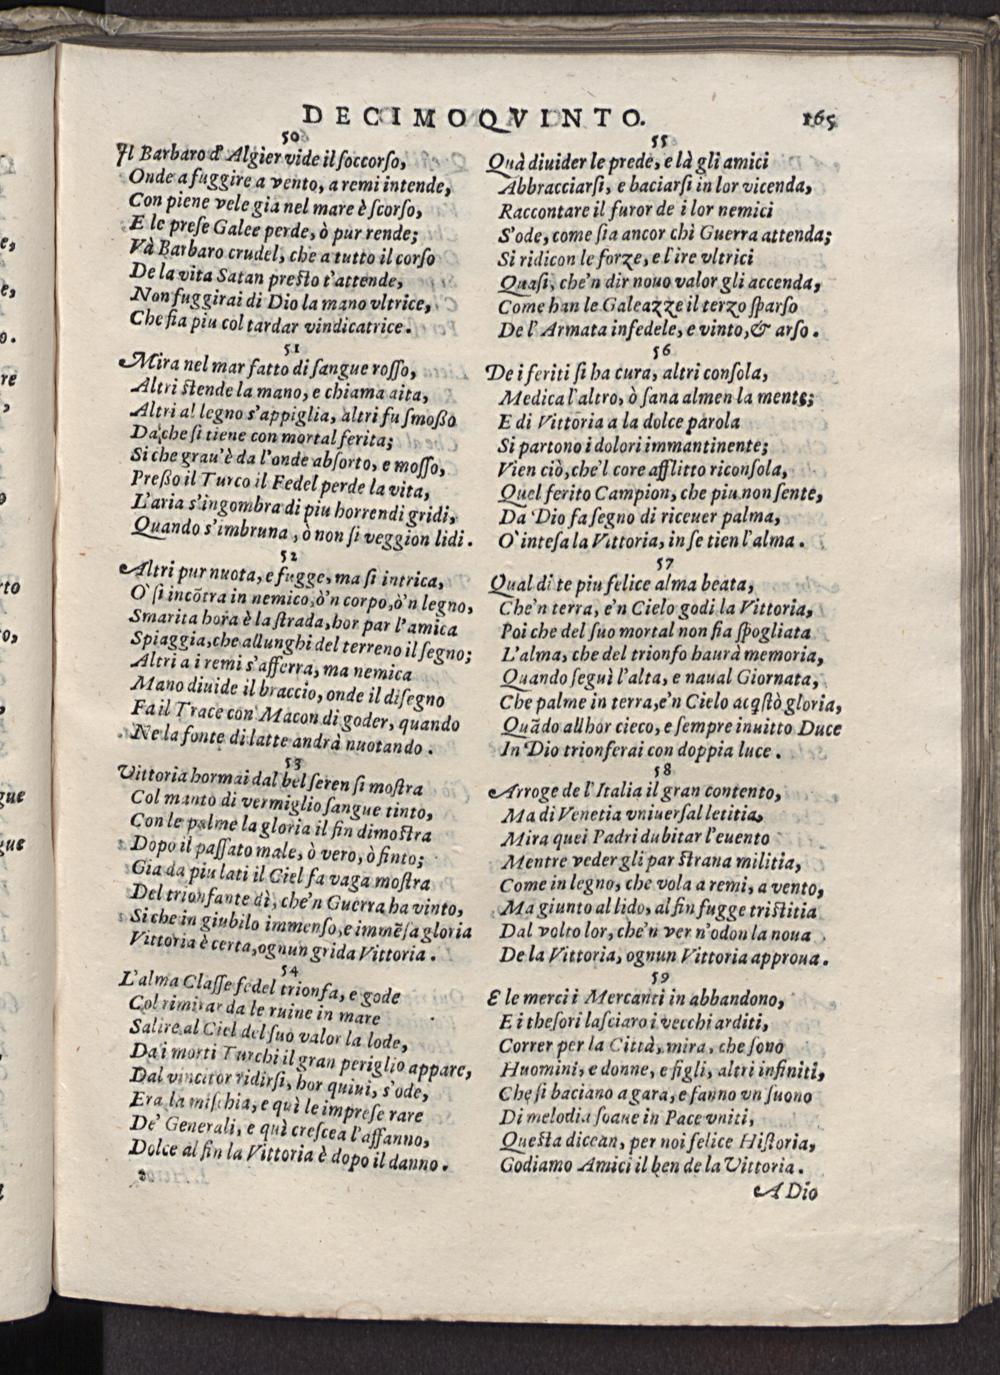 DECIMOQVINTO. 165
50
Il Barbaro d'Algier vide il ſoccorſo,
Onde a fuggire a vento, a remi intende,
Con piene vele gia nel mare è ſcorſo,
E le preſe Galee perde, ò pur rende;
Và Barbaro crudel, che a tutto il corſo
De la vita Satan preſto t'attende,
Non fuggirai di Dio la mano vltrice,
Che fia piu col tardar vindicatrice.
51
Mira nel mar fatto di ſangue roſſo,
Altri ſtende la mano, e chiama aita,
Altri al legno s'appiglia, altri fu ſmoßo
Da che ſi tiene con mortal ferita;
Si che grau'è da l'onde abſorto, e moſſo,
Preßo il Turco il Fedel perde la vita,
L'aria s'ingombra di piu horrendi gridi,
Quando s'imbruna, ò non ſi veggion lidi.
52
Altri pur nuota, e fugge, ma ſi intrica,
O' ſi incōtra in nemico, ò'n corpo, ò'n legno,
Smarita hora è la ſtrada, hor par l'amica
Spiaggia, che allunghi del terreno il ſegno;
Altri a i remi s'afferra, ma nemica
Mano diuide il braccio, onde il diſegno
Fa il Trace con Macon di goder, quando
Ne la fonte di latte andrà nuotando.
53
Vittoria hormai dal bel ſeren ſi moſtra
Col manto di vermiglio ſangue tinto,
Con le palme la gloria il fin dimoſtra
Dopo il paſſato male, ò vero, ò finto;
Gia da piu lati il Ciel fa vaga moſtra
Del trionfante dì, che'n Guerra ha vinto,
Si che in giubilo immenſo, e immēſa gloria
Vittoria è certa, ognun grida Vittoria.
54
L'alma Claſſe fedel trionfa, e gode
Col rimirar da le ruine in mare
Salire al Ciel del ſuo valor la lode,
Da i morti Turchi il gran periglio appare,
Dal vincitor ridirſi, hor quiui, s'ode,
Era la miſchia, e quì le impreſe rare
De' Generali, e quì creſcea l'affanno,
Dolce al fin la Vittoria è dopo il danno.
55
Quà diuider le prede, e là gli amici
Abbracciarſi, e baciarſi in lor vicenda,
Raccontare il furor de i lor nemici
S'ode, come ſia ancor chi Guerra attenda;
Si ridicon le forze, e l'ire vltrici
Quaſi, che'n dir nouo valor gli accenda,
Come han le Galeazze il terzo ſparſo
De l'Armata infedele, e vinto, & arſo.
56
De i feriti ſi ha cura, altri conſola,
Medica l'altro, ò ſana almen la mente;
E di Vittoria a la dolce parola
Si partono i dolori immantinente;
Vien ciò, che'l core afflitto riconſola,
Quel ferito Campion, che piu non ſente,
Da Dio fa ſegno di riceuer palma,
O' inteſa la Vittoria, in ſe tien l'alma.
57
Qual di te piu felice alma beata,
Che'n terra, e'n Cielo godi la Vittoria,
Poi che del ſuo mortal non fia ſpogliata
L'alma, che del trionfo haurà memoria,
Quando ſeguì l'alta, e naual Giornata,
Che palme in terra, e'n Cielo acqſtò gloria,
Quādo allhor cieco, e ſempre inuitto Duce
In Dio trionferai con doppia luce.
58
Arroge de l'Italia il gran contento,
Ma di Venetia vniuerſal letitia,
Mira quei Padri dubitar l'euento
Mentre veder gli par ſtrana militia,
Come in legno, che vola a remi, a vento,
Ma giunto al lido, al fin fugge triſtitia
Dal volto lor, che'n ver n'odon la noua
De la Vittoria, ognun Vittoria approua.
59
E le merci i Mercanti in abbandono,
E i theſori laſciaro i vecchi arditi,
Correr per la Città, mira, che ſono
Huomini, e donne, e figli, altri infiniti,
Che ſi baciano a gara, e fanno vn ſuono
Di melodia ſoaue in Pace vniti,
Queſta dicean, per noi felice Hiſtoria,
Godiamo Amici il ben de la Vittoria.
A Dio